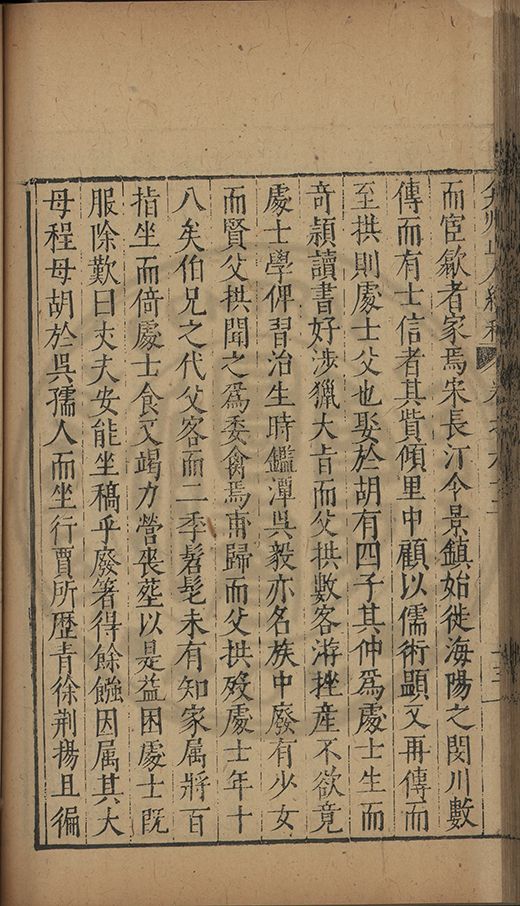 弇州山人續稿 卷之九十三 十三
而宦歙者家焉宋長汀令景鎮始徙海陽之閔川數
傳而有士信者其貲傾里中顧以儒術顯又再傳而
至拱則處士父也娶於胡有四子其仲爲處士生而
奇穎讀書好涉獵大旨而父拱數客游挫産不欲竟
處士學俾習治生時鑑潭吳毅亦名族中廢有少女
而賢父拱聞之爲委禽焉甫歸而父拱歿處士年十
八矣伯兄之代父客而二季髫髦未有知家属將百
指坐而倚處士食又竭力營喪塟以是益困處士旣
服除歎曰丈夫安能坐稿乎廢箸得餘鏹因属其大
母程母胡於吳孺人而坐行賈所歷青徐荆揚且徧